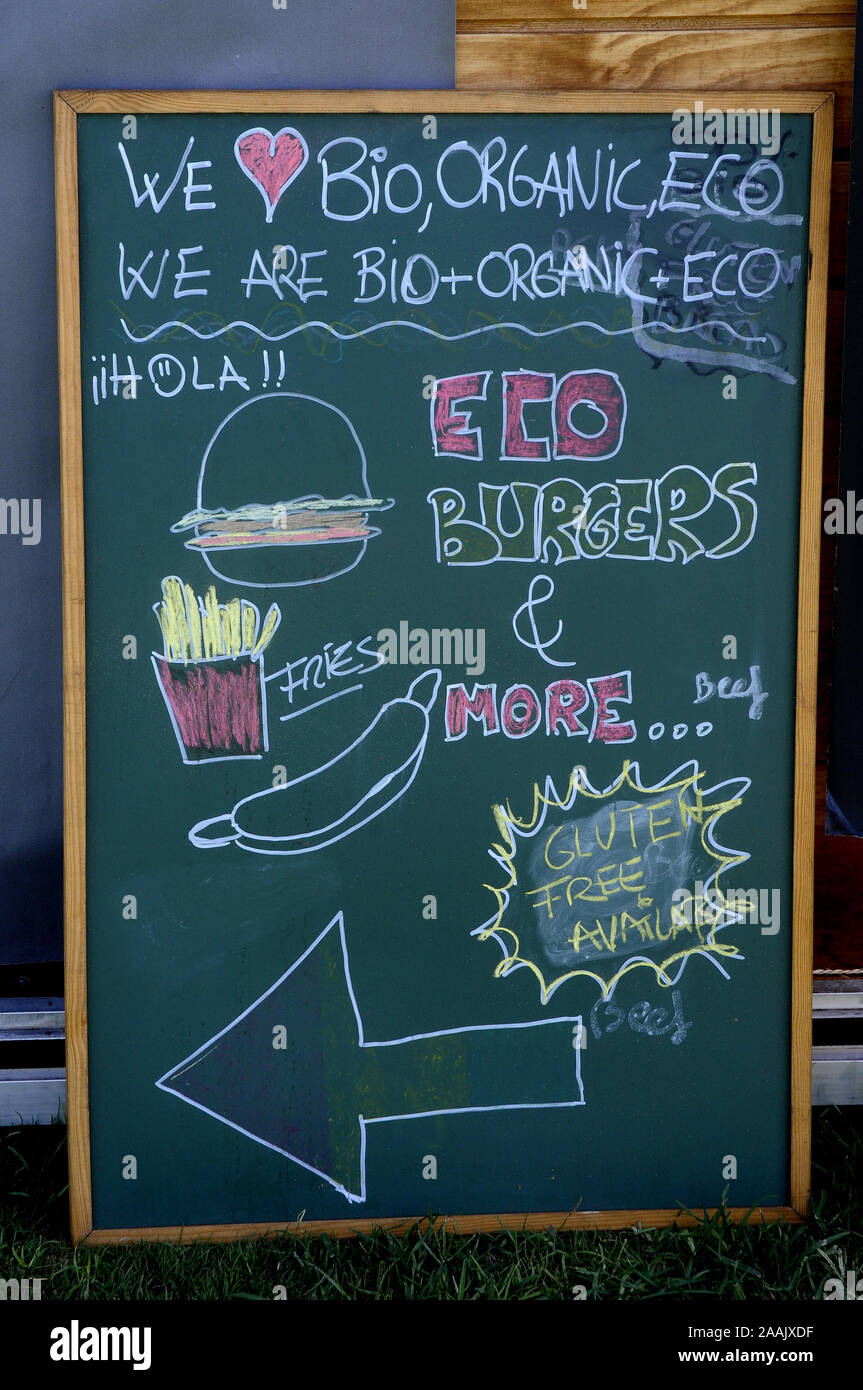 WE ♥ BiO, ORGANiC, ECO
WE ARE BiO + ORGANiC + ECO
¡¡HOLA!!
ECO
BURGERS
&
MORE...
FRiES
Beef
GLUTEN
FREE
AVAiLAB
Beef
alamy
Image ID: 2AAJXDF
www.alamy.com